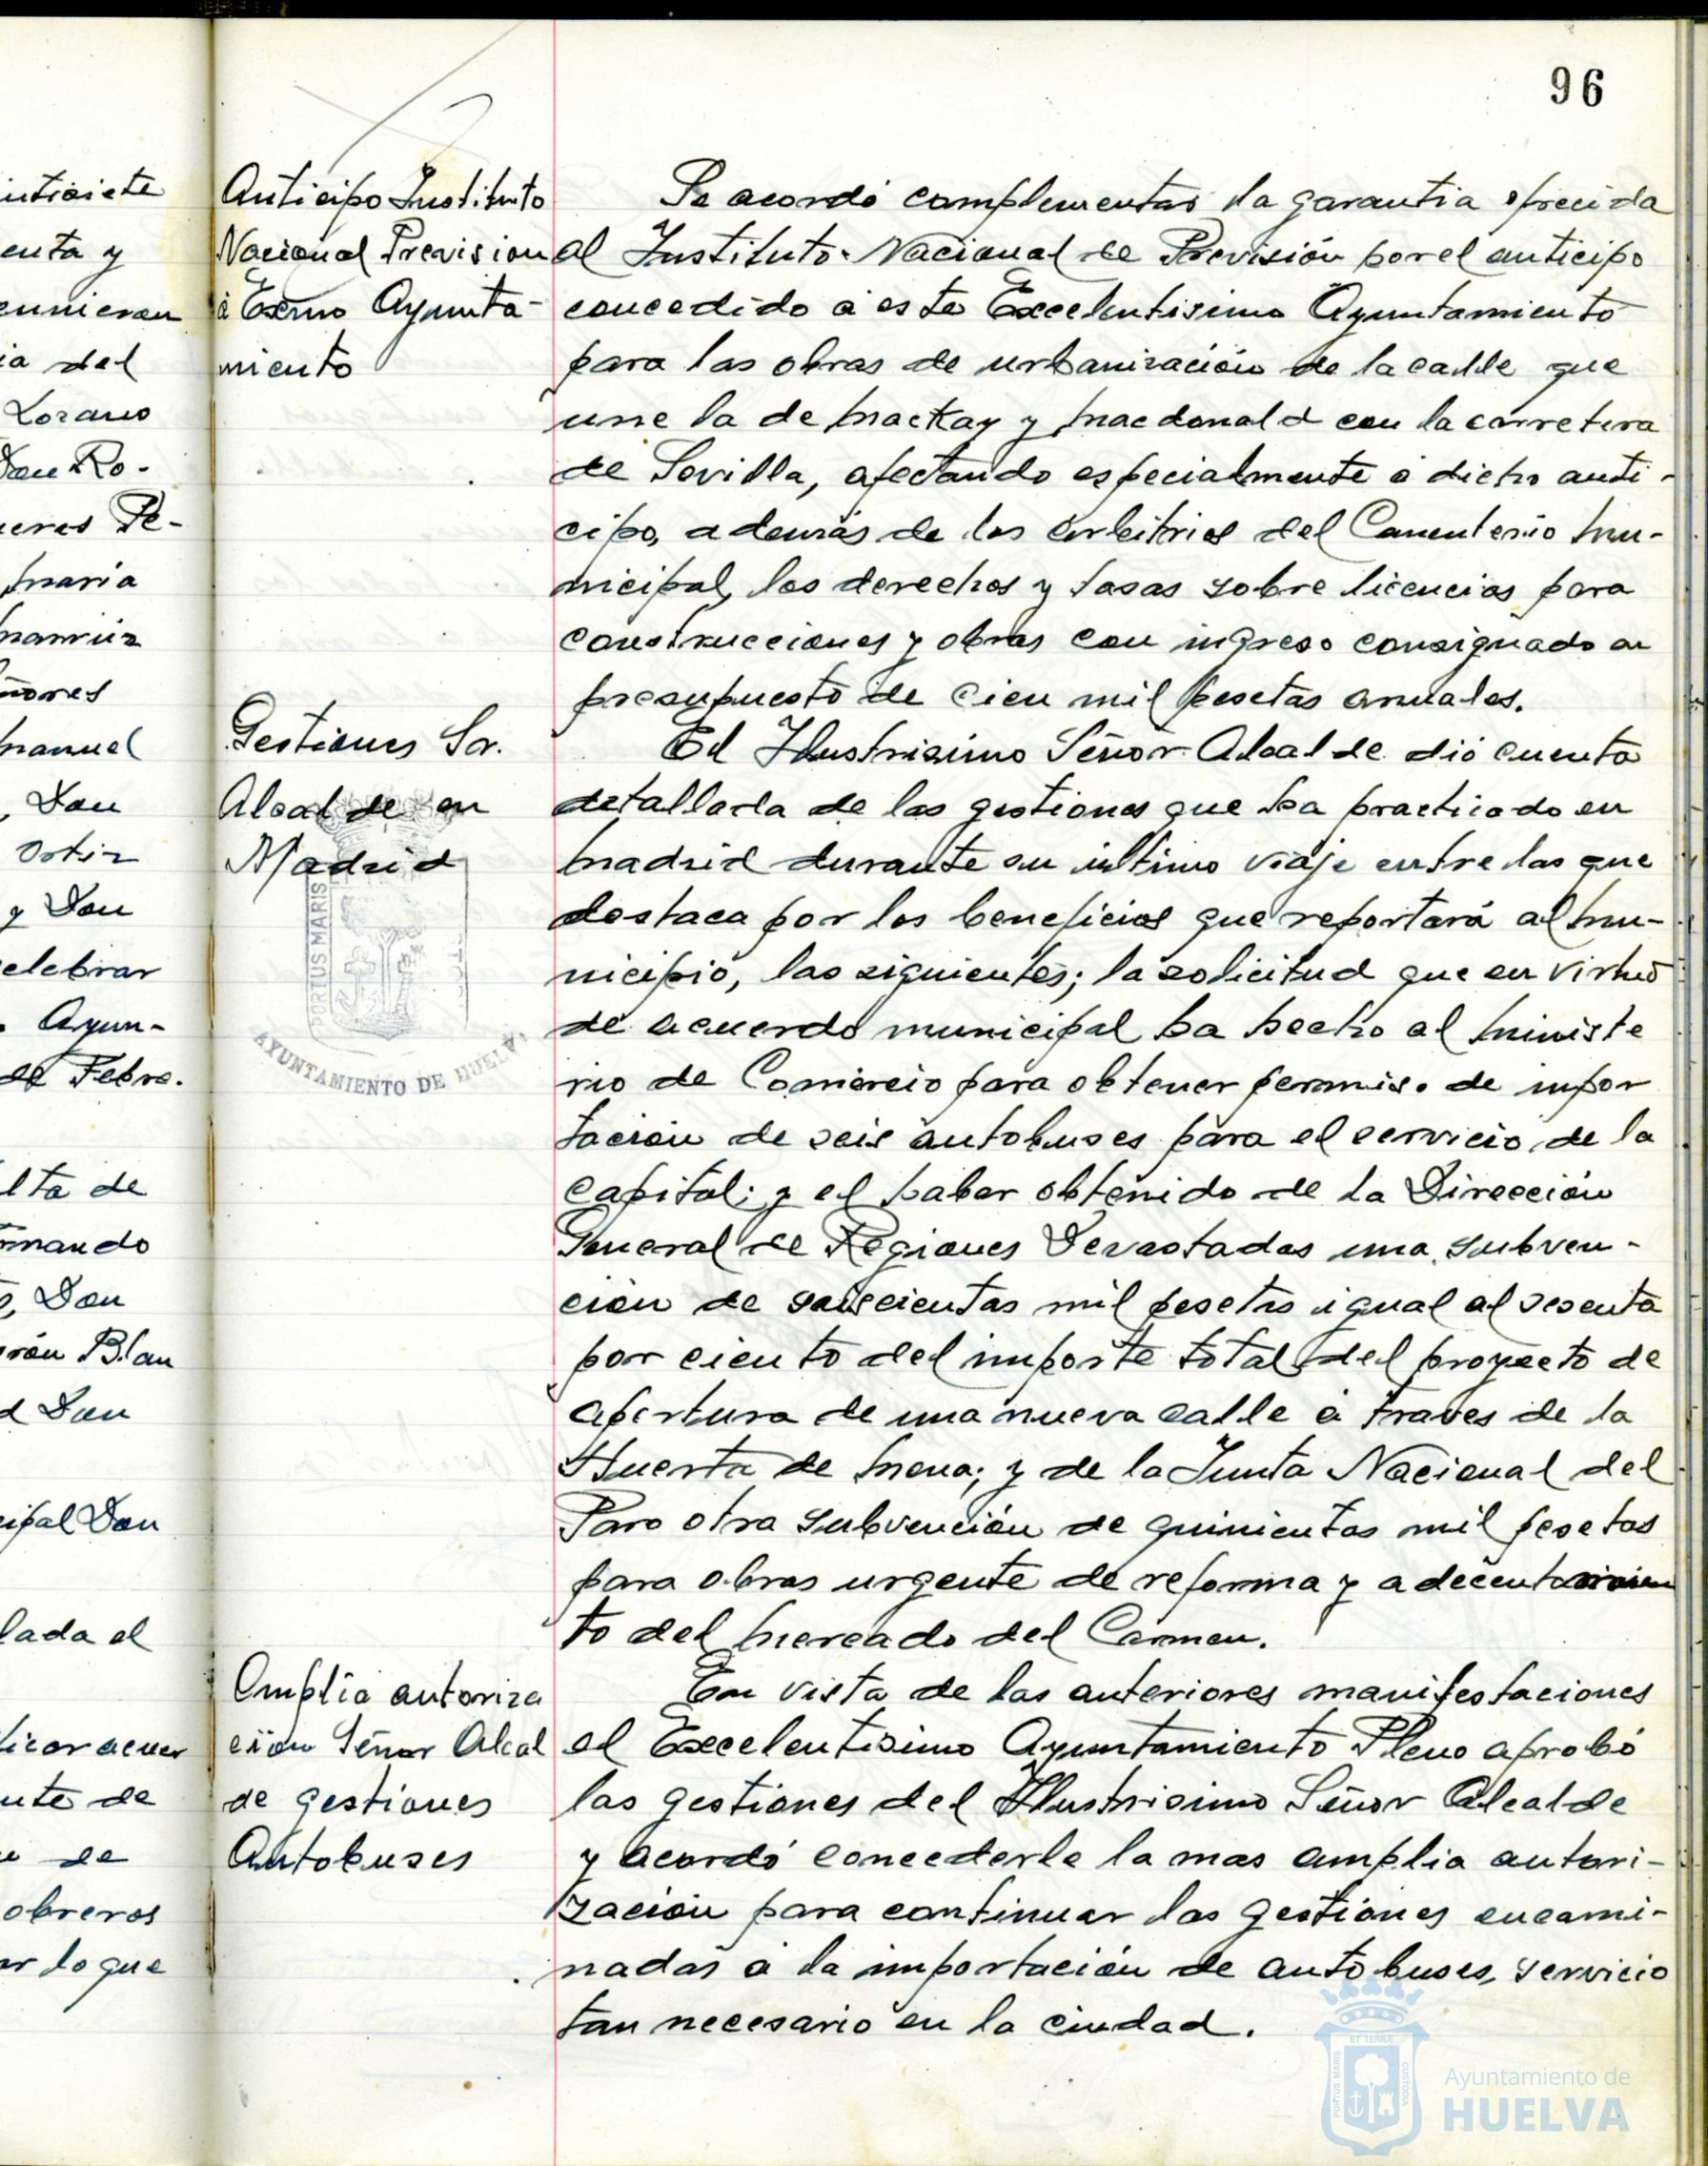 96
intisiete
enta y
eunieran
ia del
Lozano
Don Ro-
ueras Pe-
maria
manriz
ñores
manuel
, Don
Ortiz
y Don
elebrar
. Ayun-
de Febre.
lta de
rnando
s, Don
rón Blan
d Don
cipal Don
lada el
licar acuer
nte de
de
obreros
ar lo que
Anticipo Instituto
Nacional Prevision
á Excmo Ayunta-
miento
Se acordó complementar la garantia ofrecida
al Instituto Nacional de Previsión por el anticipo
concedido á este Excelentisimo Ayuntamiento
para las obras de urbanización de la calle que
une la de Mackay y Macdonald con la carretera
de Sevilla, afectando especialmente á dicho anti-
cipo, además de los arbitrios del Cementerio Mu-
nicipal, los derechos y tasas sobre licencias para
construcciones y obras con ingreso consignado en
presupuesto de cien mil pesetas anuales.
Gestiones Sr.
Alcalde en
Madrid
PORTUS MARIS
AYUNTAMIENTO DE HUELVA
El Ilustrisimo Señor Alcalde dió cuenta
detallada de las gestiones que ha practicado en
Madrid durante su último viaje entre las que
destaca por los beneficios que reportará al Mu-
nicipio, las siguientes; la solicitud que en virtud
de acuerdo municipal ha hecho al Ministe
rio de Comercio para obtener permiso de impor
tación de seis autobuses para el servicio de la
Capital; y el haber obtenido de la Dirección
General de Regiones Devastadas una subven-
ción de seiscientas mil pesetas igual al sesenta
por ciento del importe total del proyecto de
apertura de una nueva calle á traves de la
Huerta de Mena; y de la Junta Nacional del
Paro otra subvención de quinientas mil pesetas
para obras urgente de reforma y adecentamien
to del Mercado del Carmen.
Amplia autoriza
ción Señor Alcal
de gestiones
Autobuses
En vista de las anteriores manifestaciones
el Excelentisimo Ayuntamiento Pleno aprobó
las gestiones del Ilustrisimo Señor Alcalde
y acordó concederle la mas amplia autori-
zación para continuar las gestiones encami-
nadas á la importación de autobuses, servicio
tan necesario en la ciudad.
PORTUS MARIS ET TERRÆ CUSTODIA
Ayuntamiento de
HUELVA